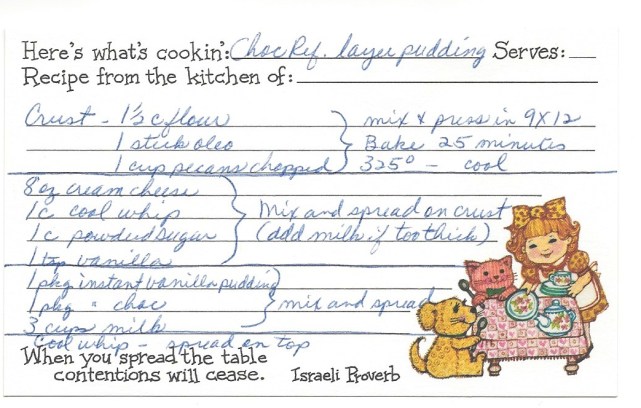 Here's what's cookin': Choc Ref. layer pudding Serves:
Recipe from the kitchen of:
Crust - 1½ c flour } mix & press in 9x12
1 stick oleo Bake 25 minutes
1 cup pecans chopped 325° - cool
8 oz cream cheese
1 c cool whip } Mix and spread on crust
1 c powdered sugar (add milk if too thick)
1 tsp vanilla
1 pkg instant vanilla pudding
1 pkg " choc } mix and spread
3 cups milk
Cool whip - spread on top
When you spread the table
contentions will cease. Israeli Proverb